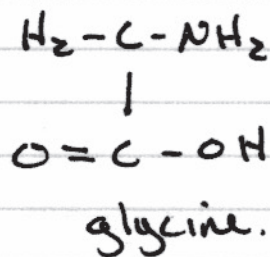 H₂-C-NH₂
|
O=C-OH
glycine.